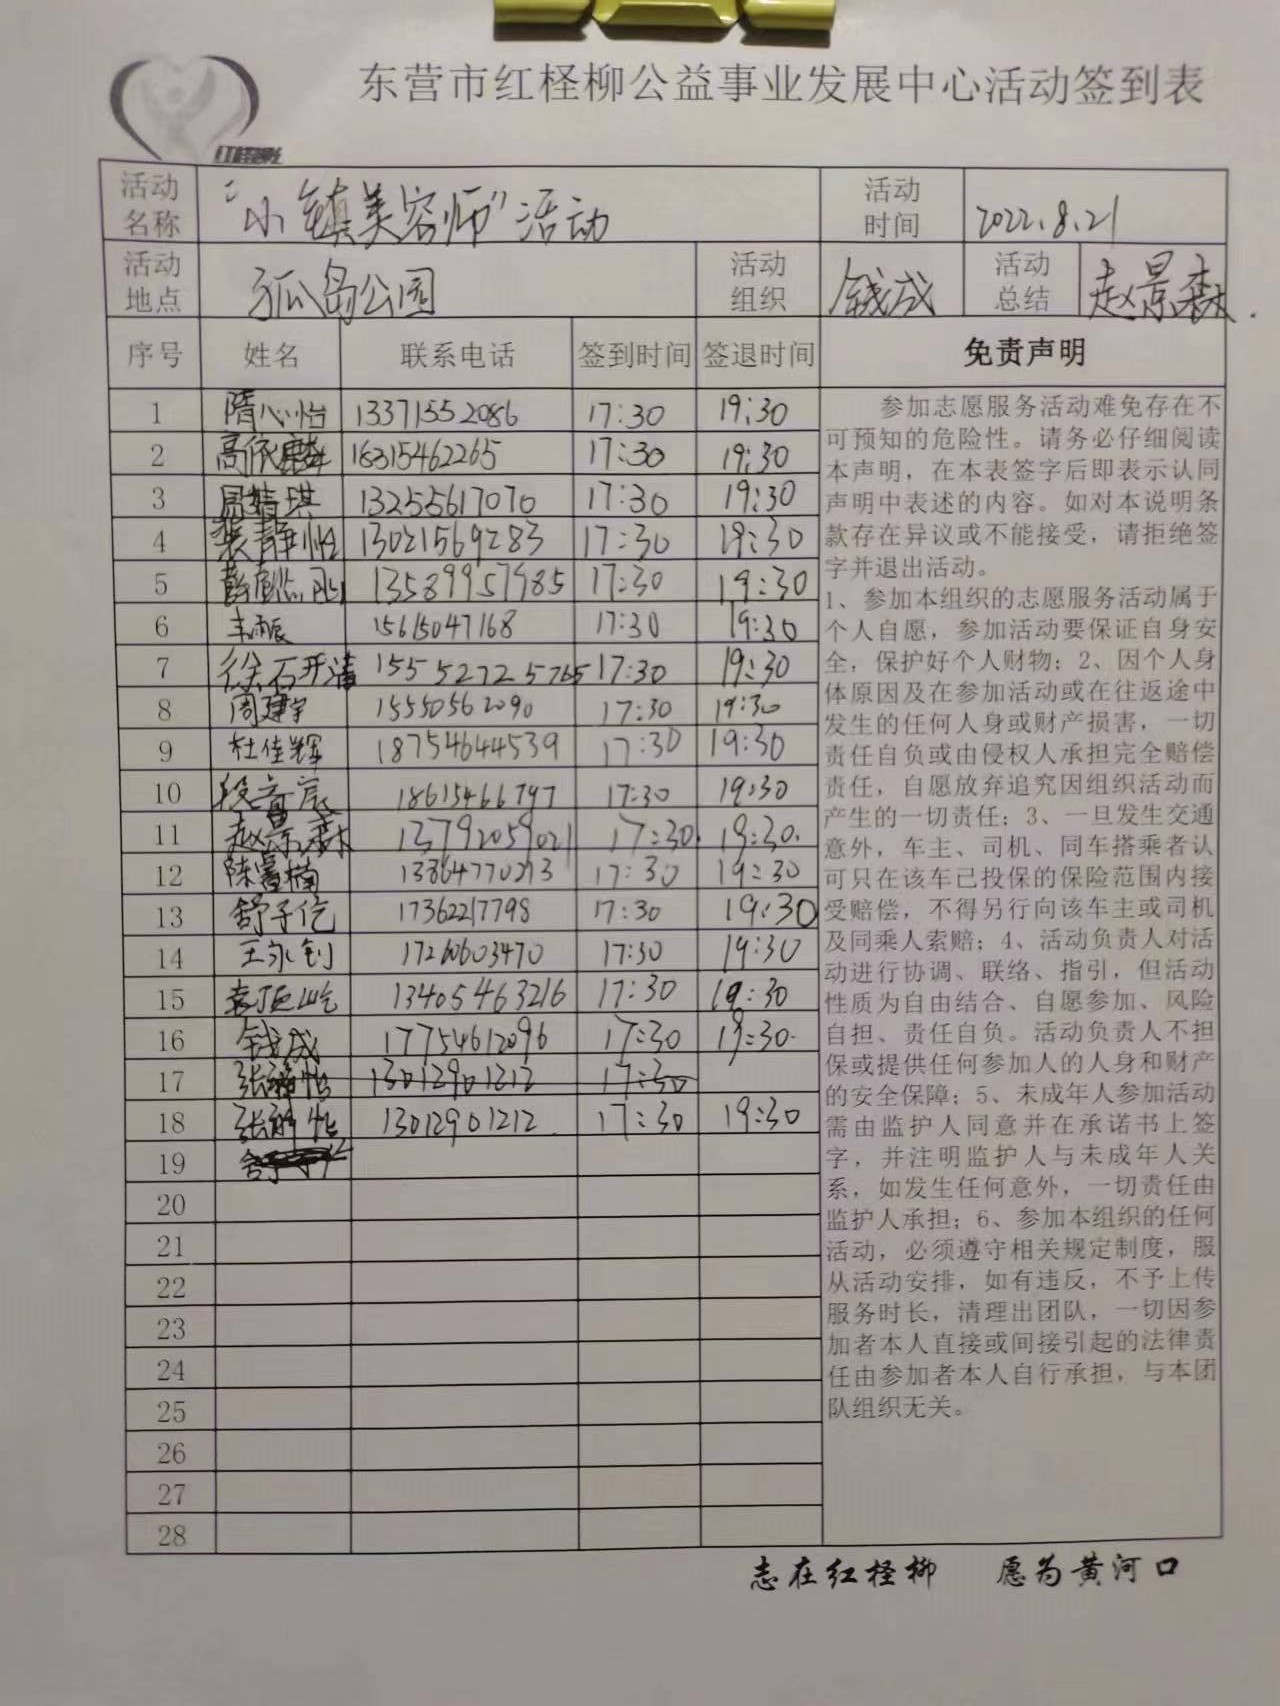 东营市红柽柳公益事业发展中心活动签到表
红柽柳
活动名称 “小镇美容师”活动 活动时间 2022.8.21
活动地点 孤岛公园 活动组织 钱成 活动总结 赵景森.
序号 姓名 联系电话 签到时间 签退时间 免责声明
1 隋心怡 13371552086 17:30 19:30
2 高依 16315462265 17:30 19:30
3 周婧琪 13255617070 17:30 19:30
4 裴静怡 13021569283 17:30 19:30
5 13589957985 17:30 19:30
6 15615047168 17:30 19:30
7 徐石开清 15552725765 17:30 19:30
8 周建宇 15550562090 17:30 19:30
9 杜佳辉 18754644539 17:30 19:30
10 段宸 18615466797 17:30 19:30
11 赵景森 13792059021 17:30. 19:30.
12 陈富楠 13864770213 17:30 19:30
13 舒子仡 17362217798 17:30 19:30
14 王永钊 17260603470 17:30 19:30
15 袁屹 13405463216 17:30 19:30
16 钱成 17754612096 17:30 19:30.
17 张怡 13012901212 17:30
18 张怡 13012901212. 17:30 19:30
19
20
21
22
23
24
25
26
27
28
参加志愿服务活动难免存在不
可预知的危险性。请务必仔细阅读
本声明，在本表签字后即表示认同
声明中表述的内容。如对本说明条
款存在异议或不能接受，请拒绝签
字并退出活动。
1、参加本组织的志愿服务活动属于
个人自愿，参加活动要保证自身安
全，保护好个人财物；2、因个人身
体原因及在参加活动或在往返途中
发生的任何人身或财产损害，一切
责任自负或由侵权人承担完全赔偿
责任，自愿放弃追究因组织活动而
产生的一切责任；3、一旦发生交通
意外，车主、司机、同车搭乘者认
可只在该车已投保的保险范围内接
受赔偿，不得另行向该车主或司机
及同乘人索赔；4、活动负责人对活
动进行协调、联络、指引，但活动
性质为自由结合、自愿参加、风险
自担、责任自负。活动负责人不担
保或提供任何参加人的人身和财产
的安全保障；5、未成年人参加活动
需由监护人同意并在承诺书上签
字，并注明监护人与未成年人关
系，如发生任何意外，一切责任由
监护人承担；6、参加本组织的任何
活动，必须遵守相关规定制度，服
从活动安排，如有违反，不予上传
服务时长，清理出团队，一切因参
加者本人直接或间接引起的法律责
任由参加者本人自行承担，与本团
队组织无关。
志在红柽柳 愿为黄河口